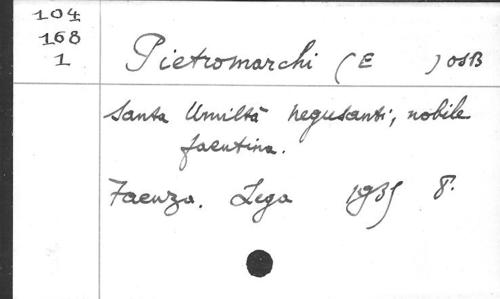 104
168
1
Pietromarchi (E ) OSB
Santa Umiltà Negusanti, nobile
faentina.
Faenza. Lega 1935 8°.